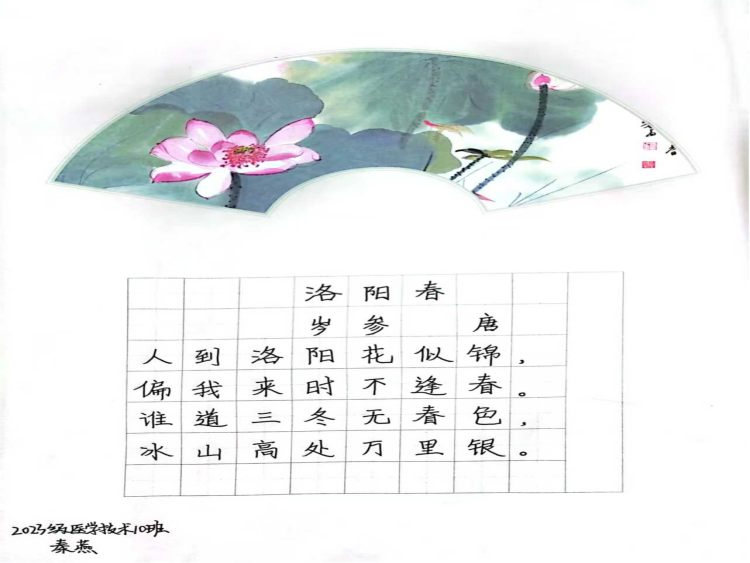 洛阳春
岑参 唐
人到洛阳花似锦，
偏我来时不逢春。
谁道三冬无春色，
冰山高处万里银。
2023级医学技术10班
秦燕